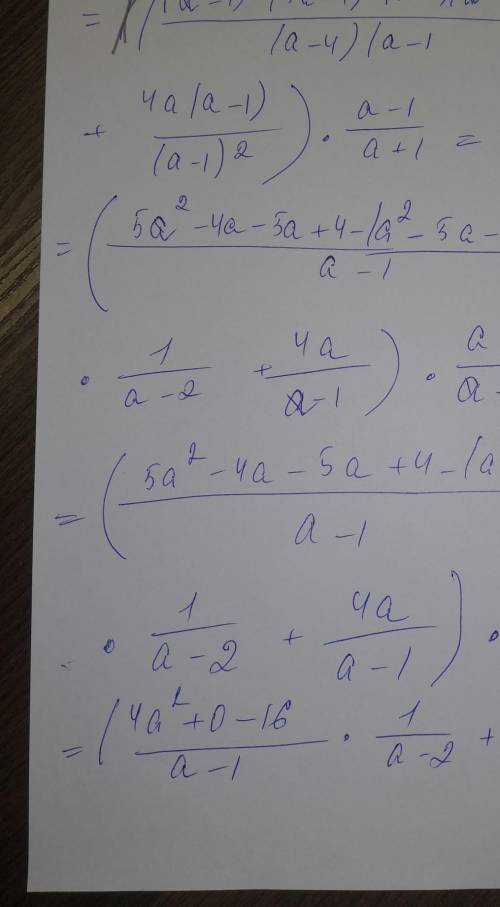 (a-4)(a-1
+ 4a(a-1)/(a-1)² ) · a-1/a+1 =
= ( 5a²-4a-5a+4-(a²-5a-/a-1
· 1/a-2 + 4a/a-1 ) · a/a-
= ( 5a²-4a-5a+4-(a/a-1
· 1/a-2 + 4a/a-1 ) ·
= ( 4a²+0-16/a-1 · 1/a-2 +